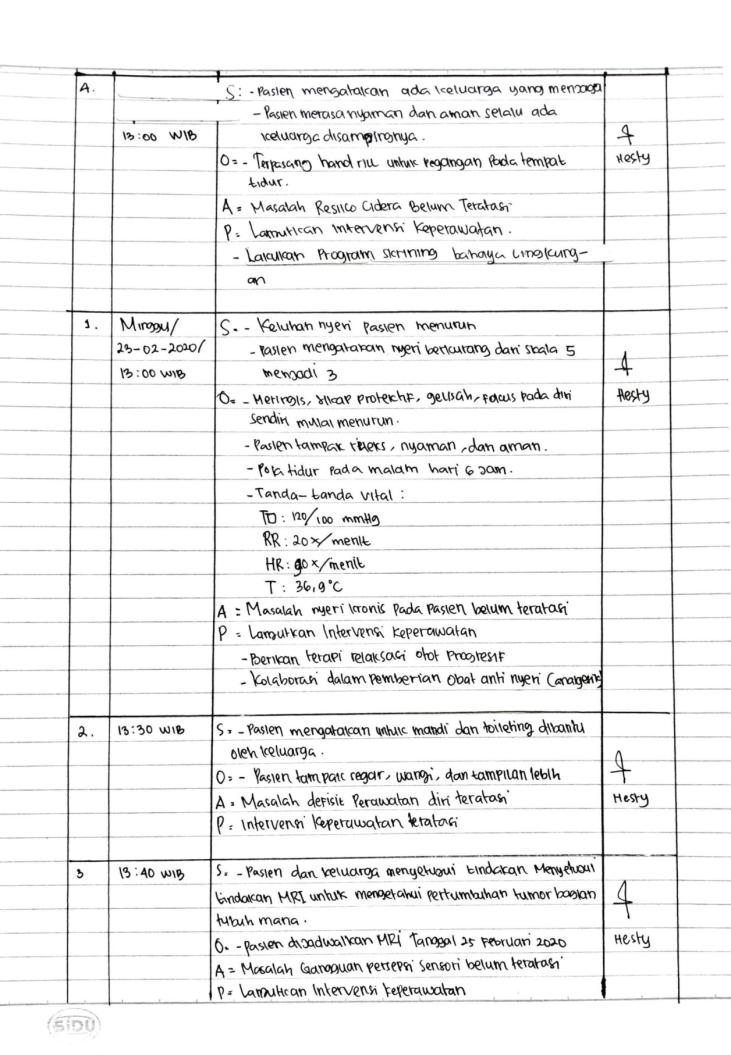 4.
S: - Pasien mengatakan ada keluarga yang menjaga
- Pasien merasa nyaman dan aman selalu ada
13:00 WIB
keluarga disampingnya.
O = - Terpasang hand riil untuk pegangan pada tempat
Hesty
tidur.
A = Masalah Resiko Cidera Belum Teratasi
P = Lanjutkan Intervensi Keperawatan.
- Lakukan Program skrining bahaya Lingkung-
an
1.
Minggu/
S = - Keluhan nyeri pasien menurun
23-02-2020/
- Pasien mengatakan nyeri berkurang dari skala 5
13:00 WIB
menjadi 3
O = - Meringis, sikap protektif, gelisah, fokus pada diri
Hesty
sendiri mulai menurun.
- Pasien tampak rileks, nyaman, dan aman.
- Pola tidur pada malam hari 6 jam.
- Tanda-tanda vital :
TD : 120/100 mmHg
RR : 20x/menit
HR : 90x/menit
T : 36,9°C
A = Masalah nyeri kronis pada pasien belum teratasi
P = Lanjutkan Intervensi Keperawatan
- Berikan terapi relaksasi otot Progresif
- Kolaborasi dalam pemberian obat anti nyeri (analgenik)
2.
13:30 WIB
S = - Pasien mengatakan untuk mandi dan toileting dibantu
oleh keluarga.
O = - Pasien tampak segar, wangi, dan tampilan lebih
A = Masalah defisit Perawatan diri teratasi
Hesty
P = Intervensi Keperawatan teratasi
3
13:40 WIB
S = - Pasien dan keluarga menyetujui tindakan Menyetujui
tindakan MRI untuk mengetahui pertumbuhan tumor bagian
tubuh mana.
O = - pasien dijadwalkan MRI Tanggal 25 Februari 2020
Hesty
A = Masalah Gangguan persepsi sensori belum teratasi
P = Lanjutkan Intervensi keperawatan
SiDU